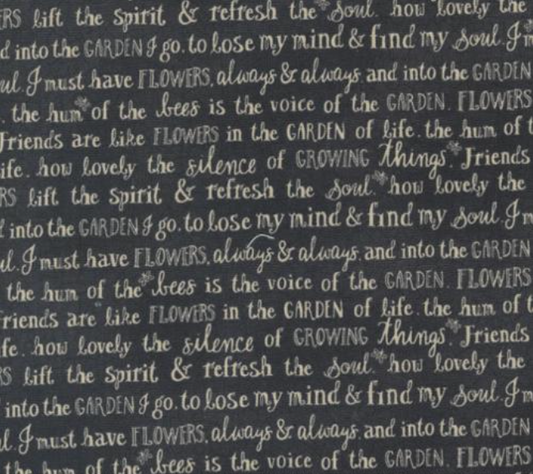 RS lift the spirit & refresh the soul. how lovely the
d into the GARDEN I go. to lose my mind & find my soul. I m
ul. I must have FLOWERS, always & always and into the GARDEN
. the hum of the bees is the voice of the GARDEN. FLOWERS
Friends are like FLOWERS in the GARDEN of life. the hum of t
ife. how lovely the silence of GROWING things. Friends
RS lift the spirit & refresh the soul. how lovely the
d into the GARDEN I go. to lose my mind & find my soul. I m
ul. I must have FLOWERS, always & always. and into the GARDEN
the hum of the bees is the voice of the GARDEN. FLOWERS
riends are like FLOWERS in the GARDEN of life. the hum of t
fe. how lovely the silence of GROWING things. Friends
RS lift the spirit & refresh the soul. how lovely the
into the GARDEN I go. to lose my mind & find my soul. I m
l. I must have FLOWERS, always & always. and into the GARDEN
the hum of the bees is the voice of the GARDEN. FLOWERS